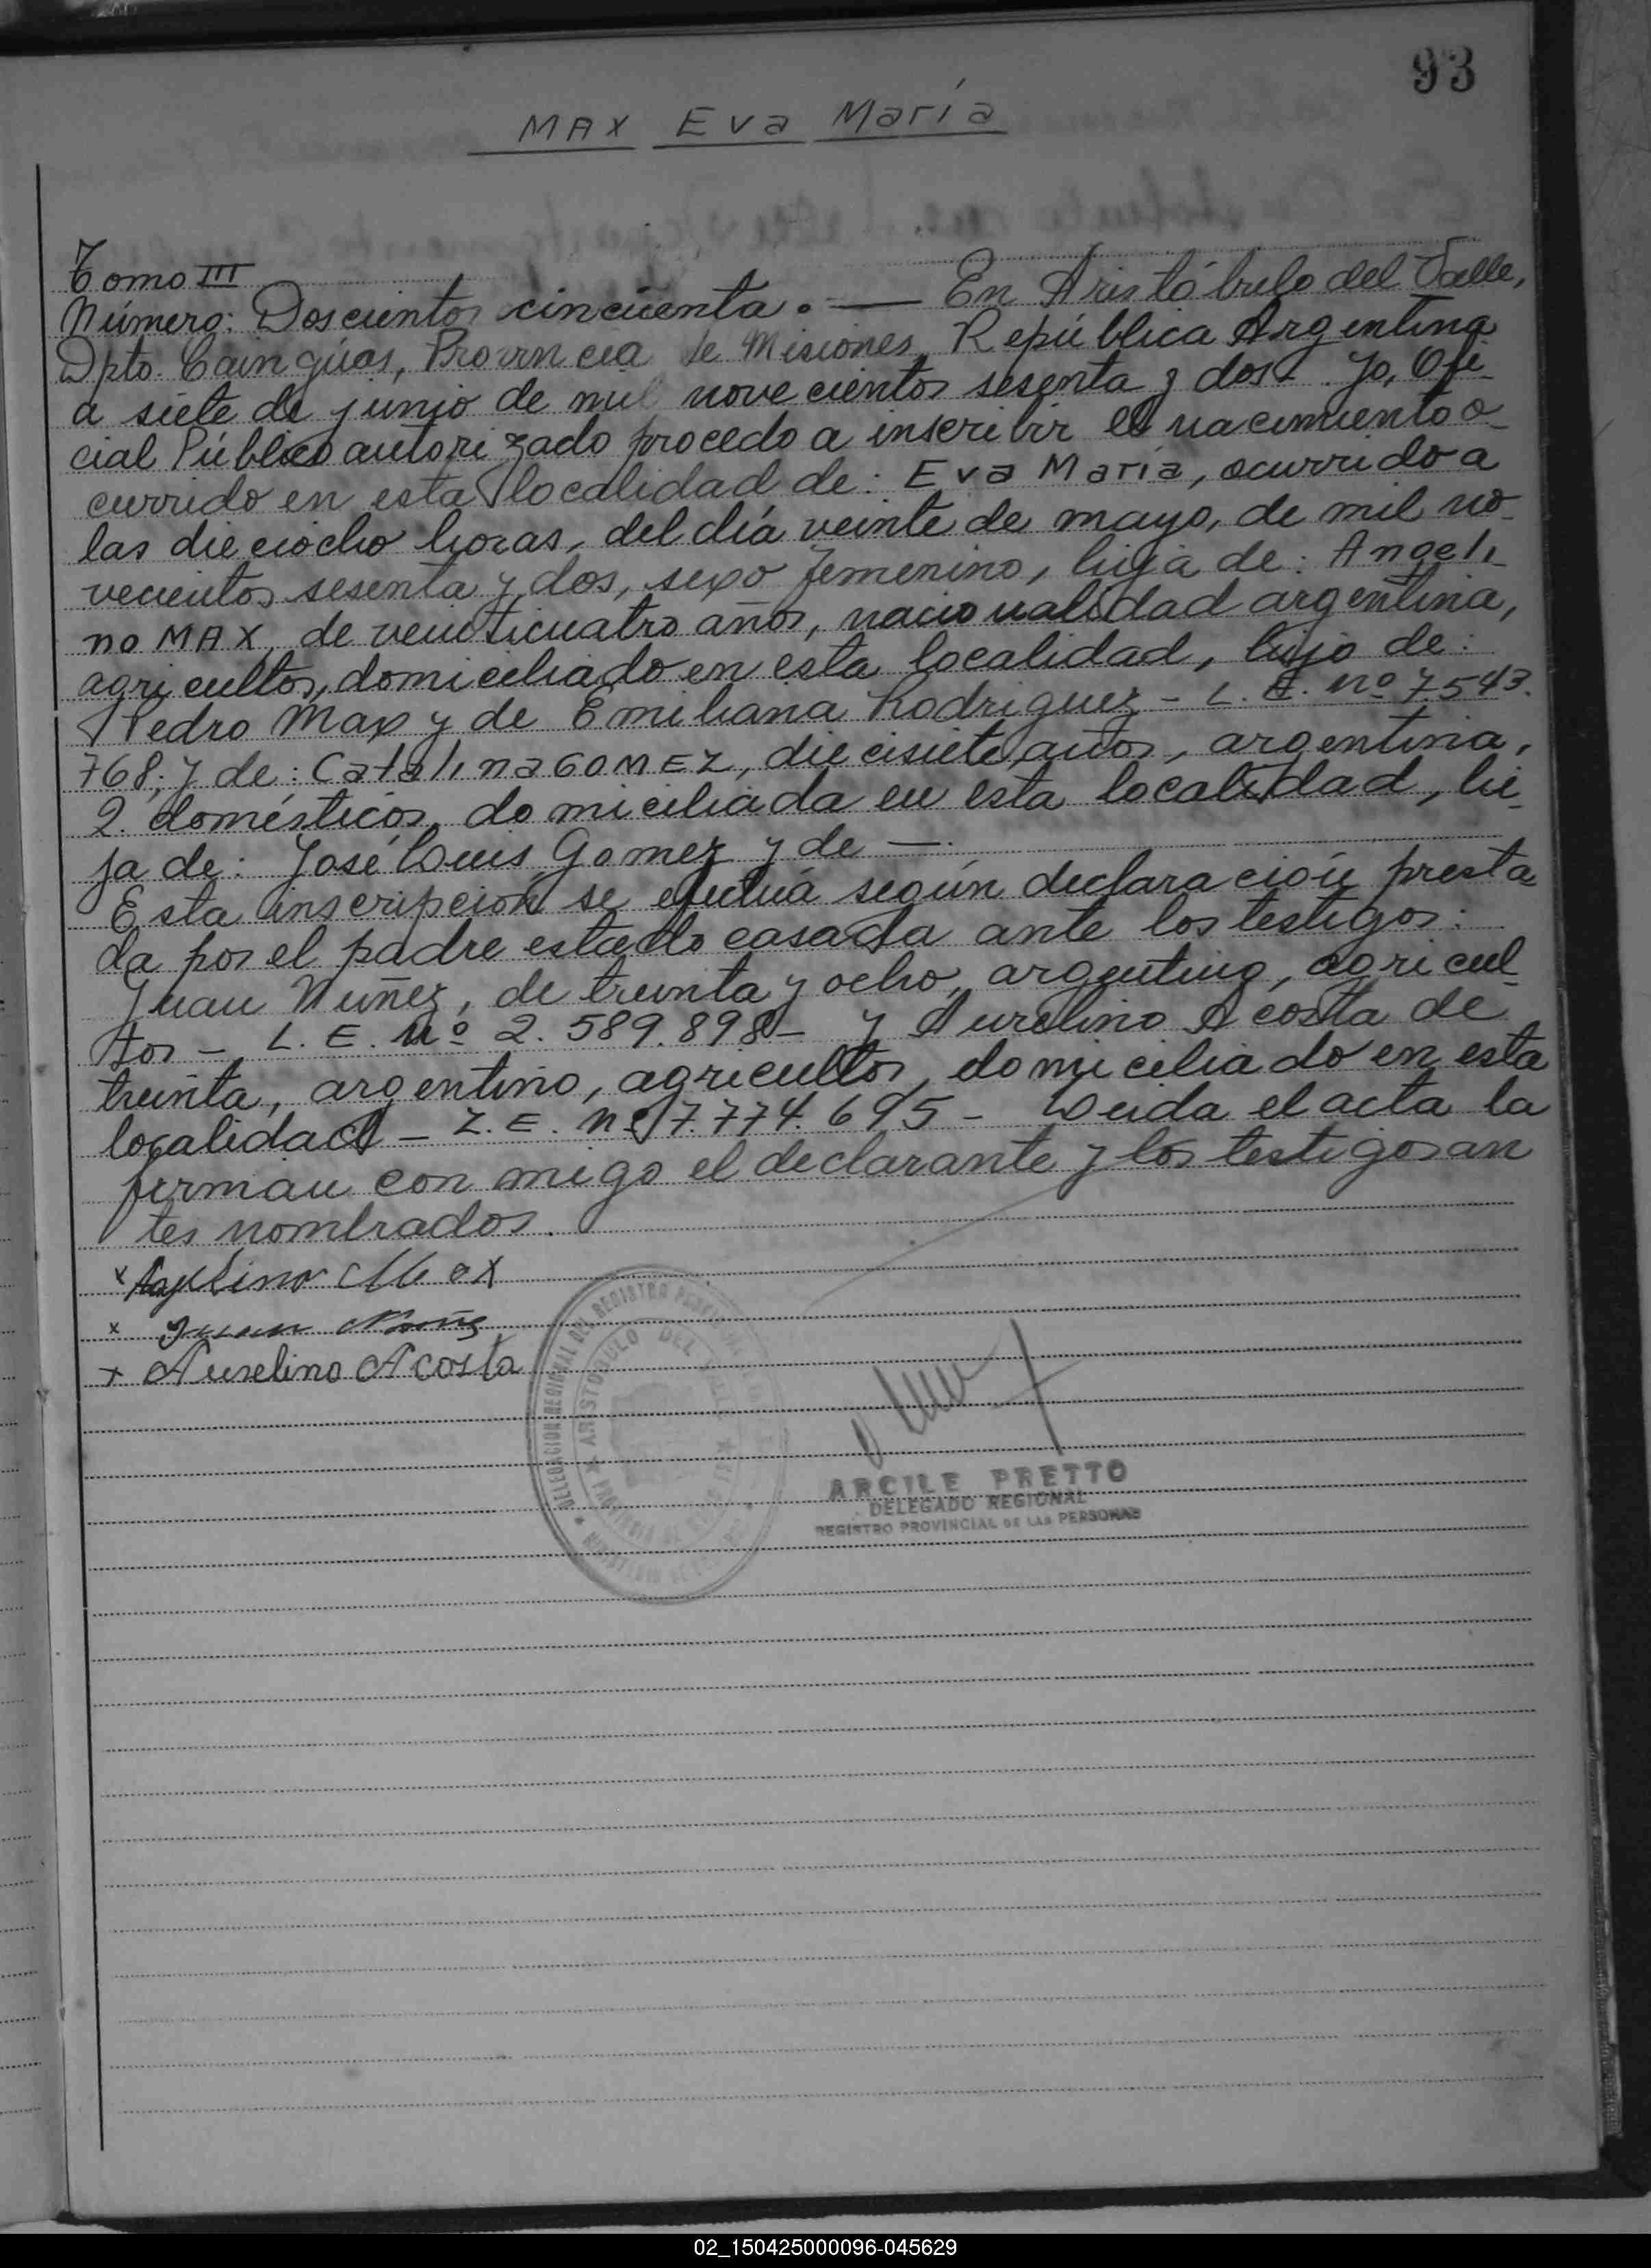 93
MAX Eva María
Tomo III
Número: Doscientos cincuenta. — En Aristóbulo del Valle,
Dpto. Cainguas, Provincia de Misiones, República Argentina
a siete de junio de mil novecientos sesenta y dos. Yo, Ofi-
cial Público autorizado procedo a inscribir el nacimiento o-
currido en esta localidad de: Eva María, ocurrido a
las dieciocho horas, del día veinte de mayo, de mil no-
vecientos sesenta y dos, sexo femenino, hija de: Angeli-
no MAX, de veinticuatro años, nacionalidad argentina,
agricultor, domiciliado en esta localidad, hijo de:
Pedro Max y de Emiliana Rodriguez - L. E. Nº 7.543.
768; y de: Catalina GOMEZ, diecisiete años, argentina,
Q. domésticos, domiciliada en esta localidad, hi-
ja de: José Luis Gomez y de —.
Esta inscripción se efectúa según declaración presta-
da por el padre estado casada ante los testigos:
Juan Nuñez, de treinta y ocho, argentino, agricul-
tor - L. E. Nº 2.589.898 - y Aurelino Acosta de
treinta, argentino, agricultor, domiciliado en esta
localidad - L. E. Nº 7.774.695 - Leida el acta la
firman con migo el declarante y los testigos an
tes nombrados.
x Angelino Max
x Juan Nuñez
x Aurelino Acosta
DELEGACION REGIONAL DEL REGISTRO PROVINCIAL
ARISTOBULO DEL VALLE
ARCILE PRETTO
DELEGADO REGIONAL
REGISTRO PROVINCIAL DE LAS PERSONAS
02_150425000096-045629